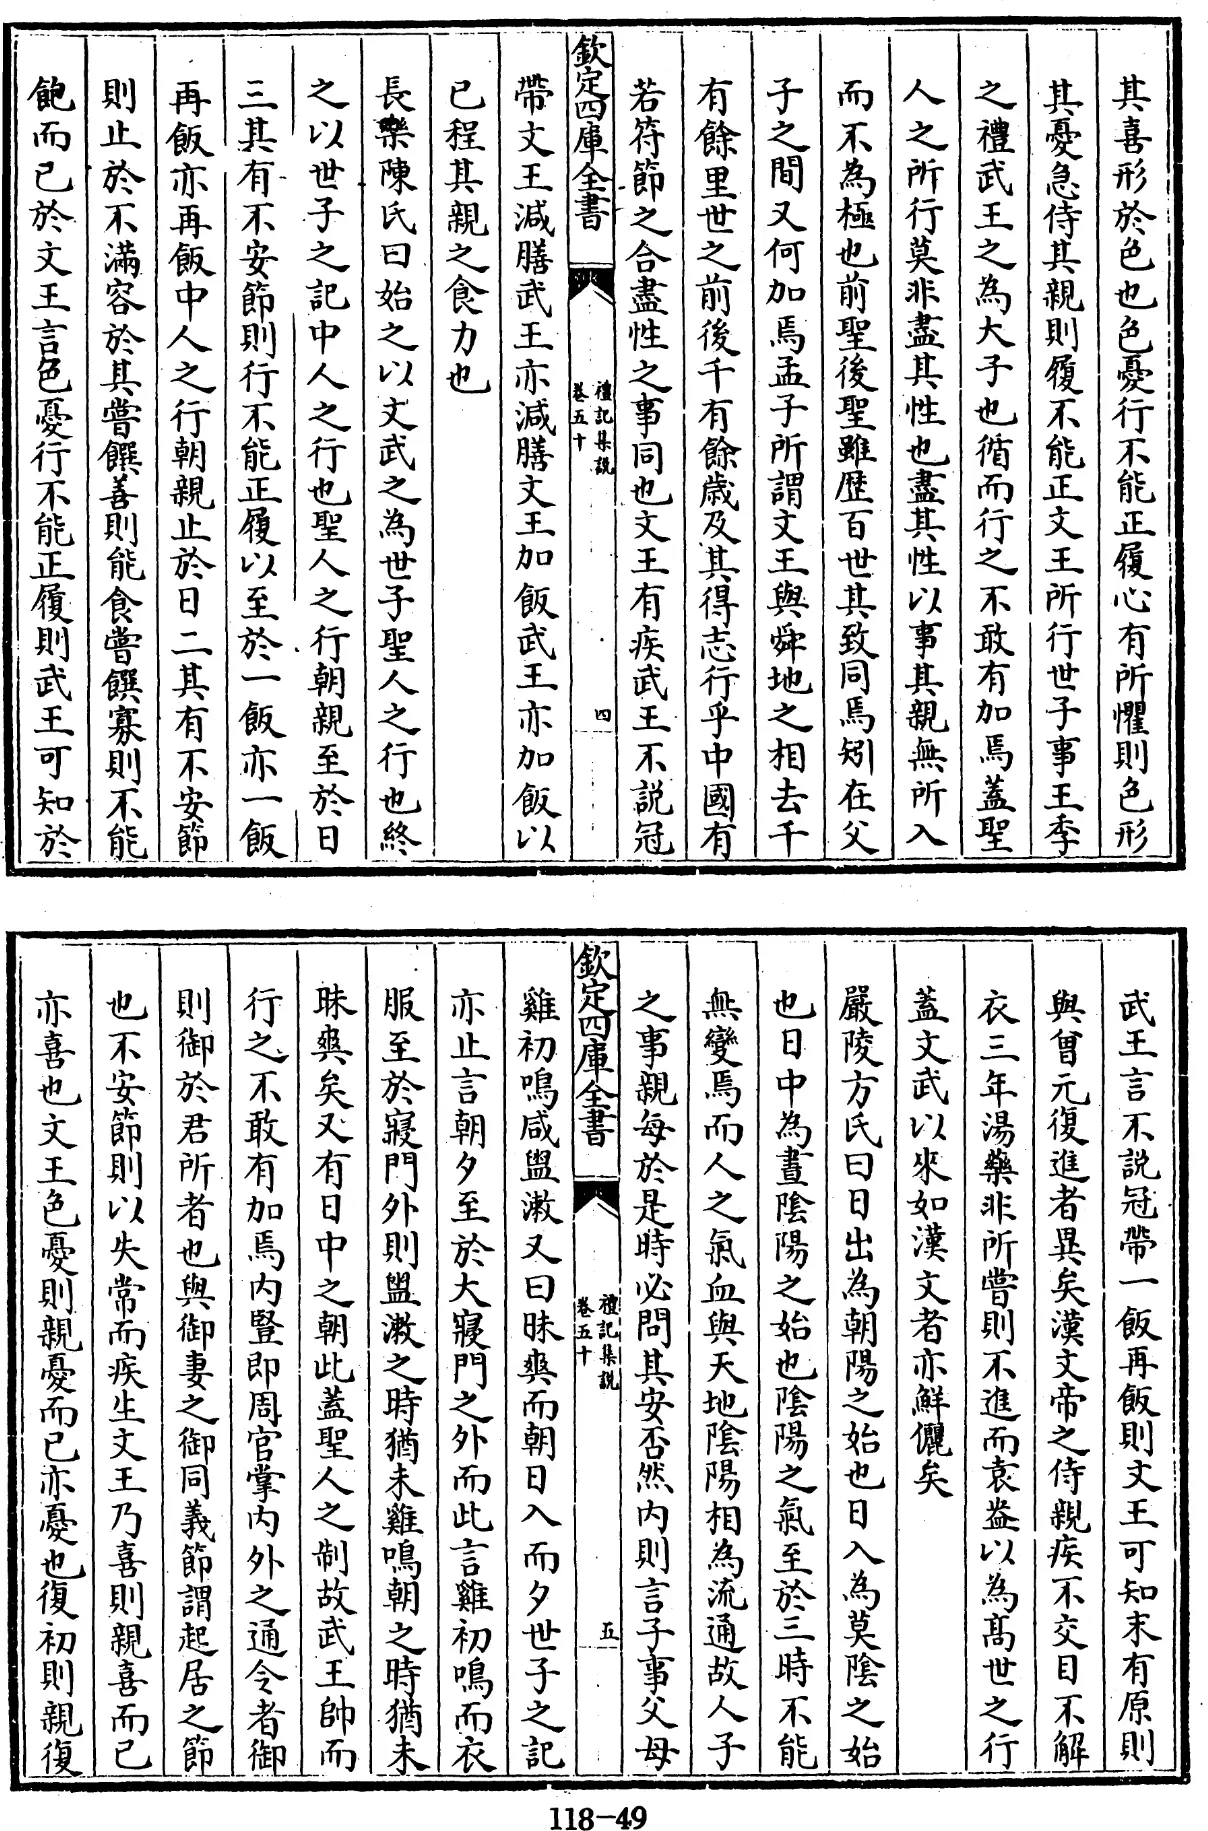 其喜形於色也色憂行不能正履心有所懼則色形
其憂急侍其親則履不能正文王所行世子事王季
之禮武王之為大子也循而行之不敢有加焉蓋聖
人之所行莫非盡其性也盡其性以事其親無所入
而不為極也前聖後聖雖歴百世其致同焉矧在父
子之間又何加焉孟子所謂文王與舜地之相去千
有餘里世之前後千有餘歳及其得志行乎中國有
若符節之合盡性之事同也文王有疾武王不說冠
欽定四庫全書
禮記集說
卷五十
四
帶文王減膳武王亦減膳文王加飯武王亦加飯以
已程其親之食力也
長樂陳氏曰始之以文武之為世子聖人之行也終
之以世子之記中人之行也聖人之行朝親至於日
三其有不安節則行不能正履以至於一飯亦一飯
再飯亦再飯中人之行朝親止於日二其有不安節
則止於不滿容於其嘗饌善則能食嘗饌寡則不能
飽而已於文王言色憂行不能正履則武王可知於
武王言不說冠帶一飯再飯則文王可知末有原則
與曾元復進者異矣漢文帝之侍親疾不交目不解
衣三年湯藥非所嘗則不進而袁盎以為髙世之行
蓋文武以來如漢文者亦鮮儷矣
嚴陵方氏曰日出為朝陽之始也日入為莫陰之始
也日中為晝陰陽之始也陰陽之氣至於三時不能
無變焉而人之氣血與天地陰陽相為流通故人子
之事親每於是時必問其安否然内則言子事父母
欽定四庫全書
禮記集說
卷五十
五
雞初鳴咸盥漱又曰昧爽而朝日入而夕世子之記
亦止言朝夕至於大寢門之外而此言雞初鳴而衣
服至於寢門外則盥漱之時猶未雞鳴朝之時猶未
昧爽矣又有日中之朝此蓋聖人之制故武王帥而
行之不敢有加焉内豎即周官掌内外之通令者御
則御於君所者也與御妻之御同義節謂起居之節
也不安節則以失常而疾生文王乃喜則親喜而已
亦喜也文王色憂則親憂而已亦憂也復初則親復
118-49